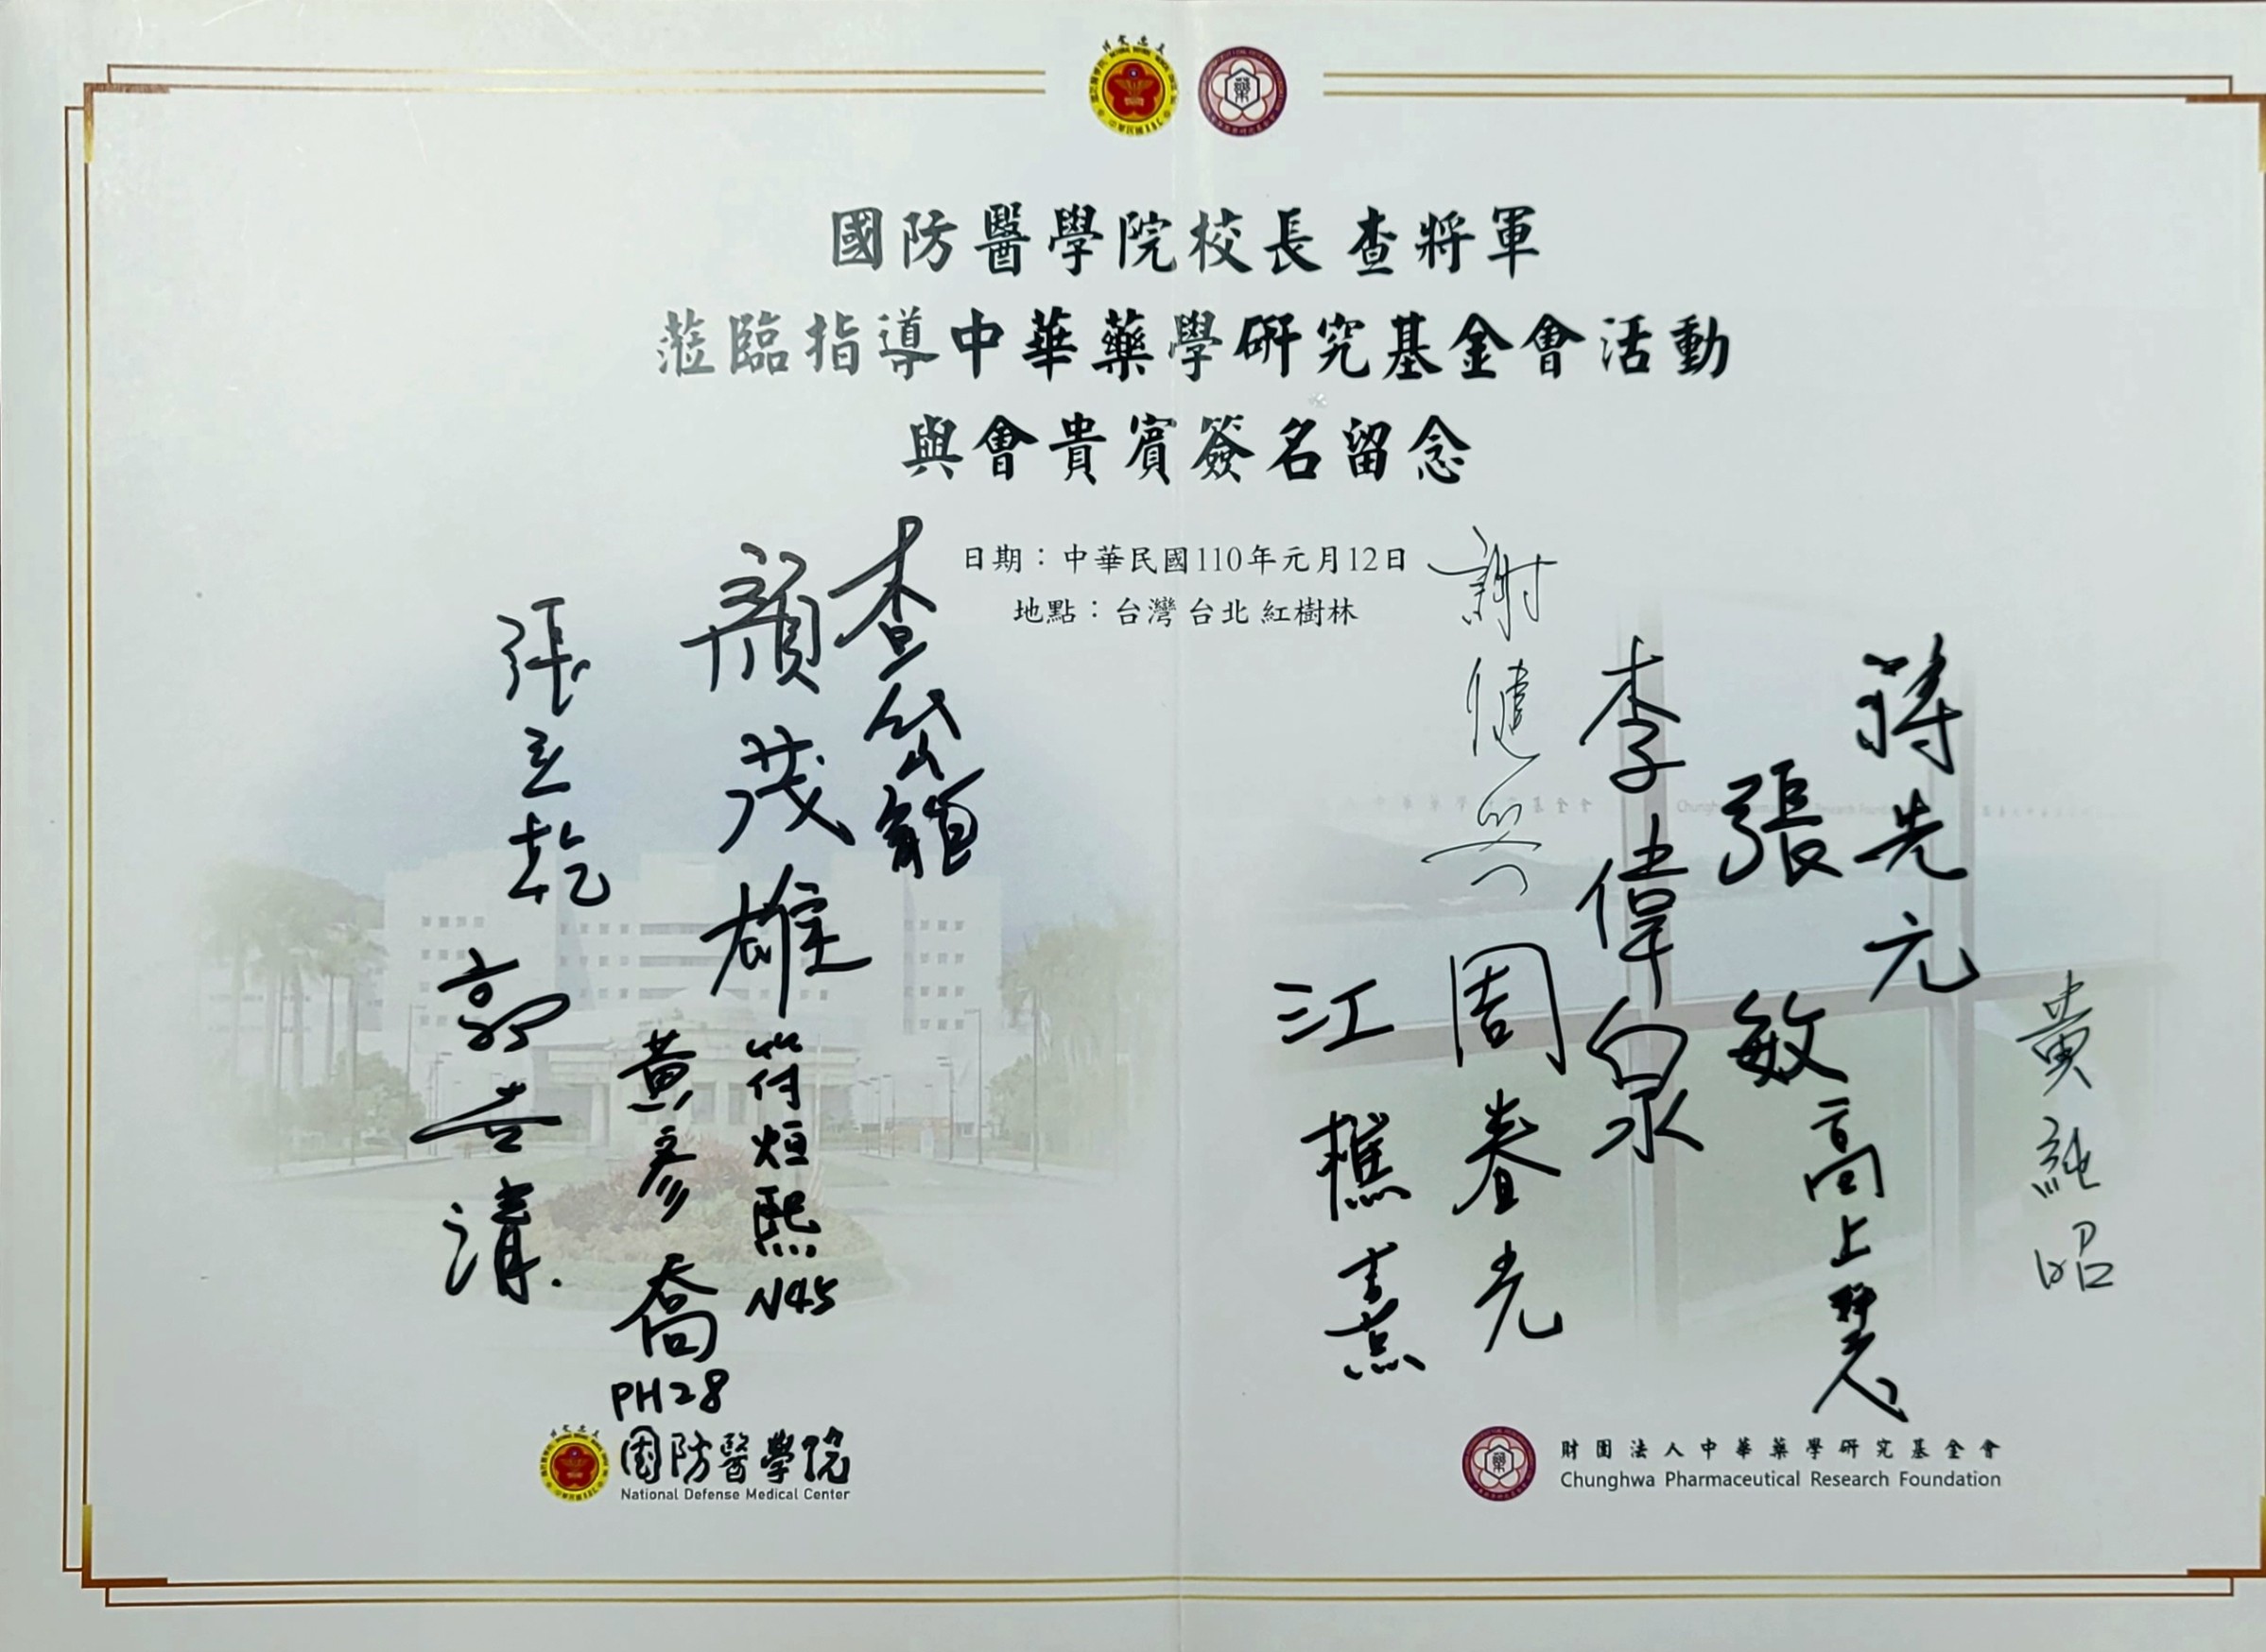 國防醫學院校長 查將軍
蒞臨指導中華藥學研究基金會活動
與會貴賓簽名留念
日期：中華民國110年元月12日
地點：台灣 台北 紅樹林
蔣先元
張敏
高上慧
黃純昭
李偉泉
周春光
江樵熹
查岱龍
顏茂雄
符烜熙
N45
黃彥喬
PH28
張立乾
郭善清
國防醫學院
National Defense Medical Center
財團法人中華藥學研究基金會
Chunghwa Pharmaceutical Research Foundation